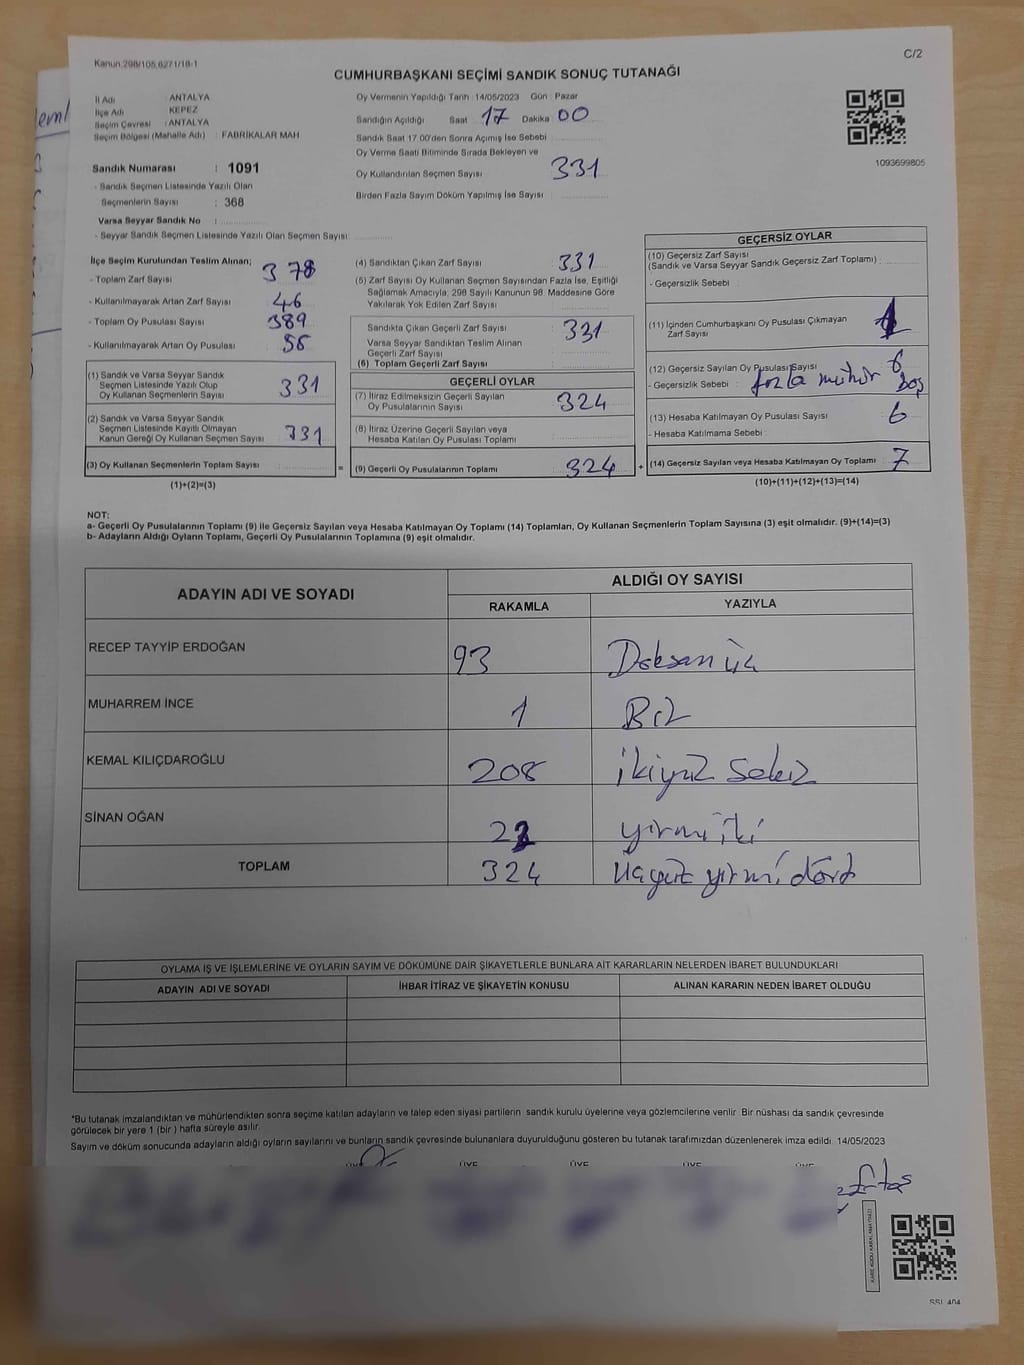 C/2
Kanun.298/105,6271/18-1
CUMHURBAŞKANI SEÇİMİ SANDIK SONUÇ TUTANAĞI
İl Adı : ANTALYA
İlçe Adı : KEPEZ
Seçim Çevresi : ANTALYA
Seçim Bölgesi (Mahalle Adı) : FABRİKALAR MAH
Sandık Numarası : 1091
- Sandık Seçmen Listesinde Yazılı Olan
Seçmenlerin Sayısı : 368
Varsa Seyyar Sandık No :
- Seyyar Sandık Seçmen Listesinde Yazılı Olan Seçmen Sayısı:
Oy Vermenin Yapıldığı Tarih :14/05/2023 Gün : Pazar
Sandığın Açıldığı Saat 17 Dakika 00
Sandık Saat 17.00'den Sonra Açılmış İse Sebebi :
Oy Verme Saati Bitiminde Sırada Bekleyen ve
Oy Kullandırılan Seçmen Sayısı : 331
Birden Fazla Sayım Döküm Yapılmış İse Sayısı :
1093699805
İlçe Seçim Kurulundan Teslim Alınan;
- Toplam Zarf Sayısı : 378
- Kullanılmayarak Artan Zarf Sayısı : 46
- Toplam Oy Pusulası Sayısı : 389
- Kullanılmayarak Artan Oy Pusulası :
(1) Sandık ve Varsa Seyyar Sandık
Seçmen Listesinde Yazılı Olup
Oy Kullanan Seçmenlerin Sayısı : 331
(2) Sandık ve Varsa Seyyar Sandık
Seçmen Listesinde Kayıtlı Olmayan
Kanun Gereği Oy Kullanan Seçmen Sayısı : 331
(3) Oy Kullanan Seçmenlerin Toplam Sayısı :
(1)+(2)=(3)
(4) Sandıktan Çıkan Zarf Sayısı : 331
(5) Zarf Sayısı Oy Kullanan Seçmen Sayısından Fazla İse, Eşitliği
Sağlamak Amacıyla, 298 Sayılı Kanunun 98. Maddesine Göre
Yakılarak Yok Edilen Zarf Sayısı :
Sandıkta Çıkan Geçerli Zarf Sayısı : 331
Varsa Seyyar Sandıktan Teslim Alınan
Geçerli Zarf Sayısı :
(6) Toplam Geçerli Zarf Sayısı :
GEÇERLİ OYLAR
(7) İtiraz Edilmeksizin Geçerli Sayılan
Oy Pusulalarının Sayısı : 324
(8) İtiraz Üzerine Geçerli Sayılan veya
Hesaba Katılan Oy Pusulası Toplamı :
= (9) Geçerli Oy Pusulalarının Toplamı : 324 +
GEÇERSİZ OYLAR
(10) Geçersiz Zarf Sayısı
(Sandık ve Varsa Seyyar Sandık Geçersiz Zarf Toplamı) :
- Geçersizlik Sebebi :
(11) İçinden Cumhurbaşkanı Oy Pusulası Çıkmayan
Zarf Sayısı : 1
(12) Geçersiz Sayılan Oy Pusulası Sayısı : 6
- Geçersizlik Sebebi : fazla mühür boş
(13) Hesaba Katılmayan Oy Pusulası Sayısı : 6
- Hesaba Katılmama Sebebi :
(14) Geçersiz Sayılan veya Hesaba Katılmayan Oy Toplamı : 7
(10)+(11)+(12)+(13)=(14)
NOT:
a- Geçerli Oy Pusulalarının Toplamı (9) ile Geçersiz Sayılan veya Hesaba Katılmayan Oy Toplamı (14) Toplamları, Oy Kullanan Seçmenlerin Toplam Sayısına (3) eşit olmalıdır. (9)+(14)=(3)
b- Adayların Aldığı Oyların Toplamı, Geçerli Oy Pusulalarının Toplamına (9) eşit olmalıdır.
ADAYIN ADI VE SOYADI ALDIĞI OY SAYISI
RAKAMLA YAZIYLA
RECEP TAYYİP ERDOĞAN 93 Doksan üç
MUHARREM İNCE 1 Bir
KEMAL KILIÇDAROĞLU 208 ikiyüz sekiz
SİNAN OĞAN 22 yirmi iki
TOPLAM 324 üçyüz yirmi dört
OYLAMA İŞ VE İŞLEMLERİNE VE OYLARIN SAYIM VE DÖKÜMÜNE DAİR ŞİKAYETLERLE BUNLARA AİT KARARLARIN NELERDEN İBARET BULUNDUKLARI
ADAYIN ADI VE SOYADI İHBAR İTİRAZ VE ŞİKAYETİN KONUSU ALINAN KARARIN NEDEN İBARET OLDUĞU
*Bu tutanak imzalandıktan ve mühürlendikten sonra seçime katılan adayların ve talep eden siyasi partilerin sandık kurulu üyelerine veya gözlemcilerine verilir. Bir nüshası da sandık çevresinde
görülecek bir yere 1 (bir) hafta süreyle asılır.
Sayım ve döküm sonucunda adayların aldığı oyların sayılarını ve bunların sandık çevresinde bulunanlara duyurulduğunu gösteren bu tutanak tarafımızdan düzenlenerek imza edildi. 14/05/2023
ÜYE ÜYE ÜYE ÜYE ÜYE